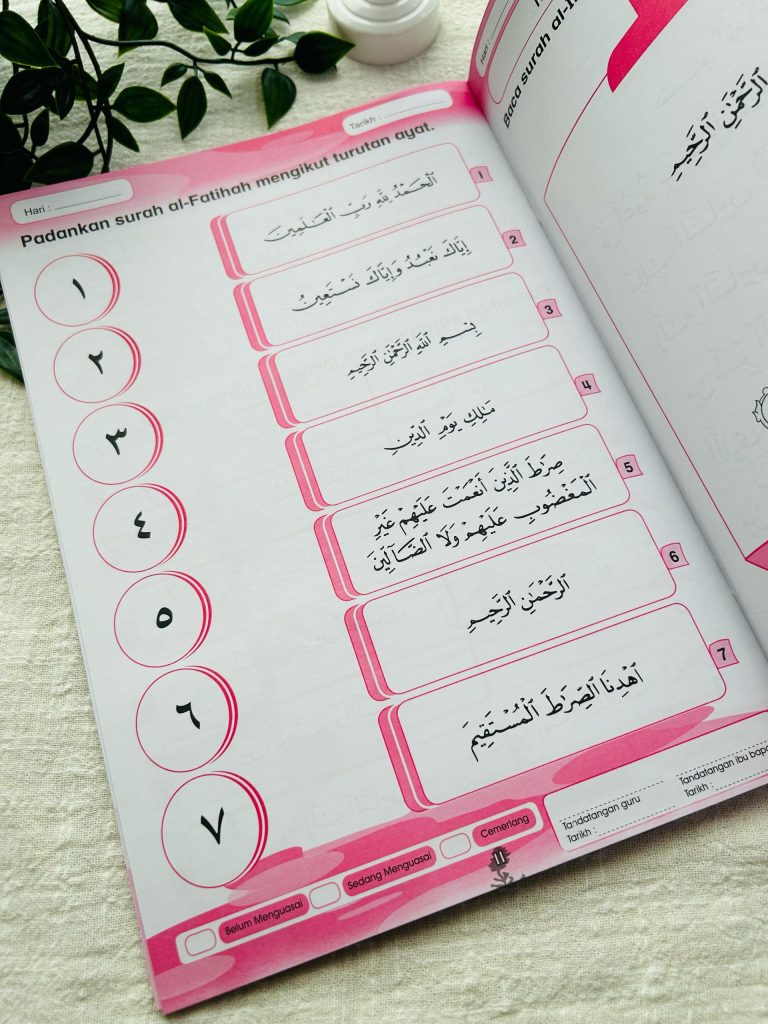 Hari :
Tarikh :
Padankan surah al-Fatihah mengikut turutan ayat.
١
٢
٣
٤
٥
٦
٧
ٱلْحَمْدُ لِلَّهِ رَبِّ ٱلْعَـٰلَمِينَ
1
إِيَّاكَ نَعْبُدُ وَإِيَّاكَ نَسْتَعِينُ
2
بِسْمِ ٱللَّهِ ٱلرَّحْمَـٰنِ ٱلرَّحِيمِ
3
مَـٰلِكِ يَوْمِ ٱلدِّينِ
4
صِرَٰطَ ٱلَّذِينَ أَنْعَمْتَ عَلَيْهِمْ غَيْرِ
ٱلْمَغْضُوبِ عَلَيْهِمْ وَلَا ٱلضَّآلِّينَ
5
ٱلرَّحْمَـٰنِ ٱلرَّحِيمِ
6
ٱهْدِنَا ٱلصِّرَٰطَ ٱلْمُسْتَقِيمَ
7
Belum Menguasai
Sedang Menguasai
Cemerlang
11
Tandatangan guru
Tarikh :
Tandatangan ibu
Tarikh :
Hari :
Baca surah
ٱلرَّحْمَـٰنِ ٱلرَّحِيمِ